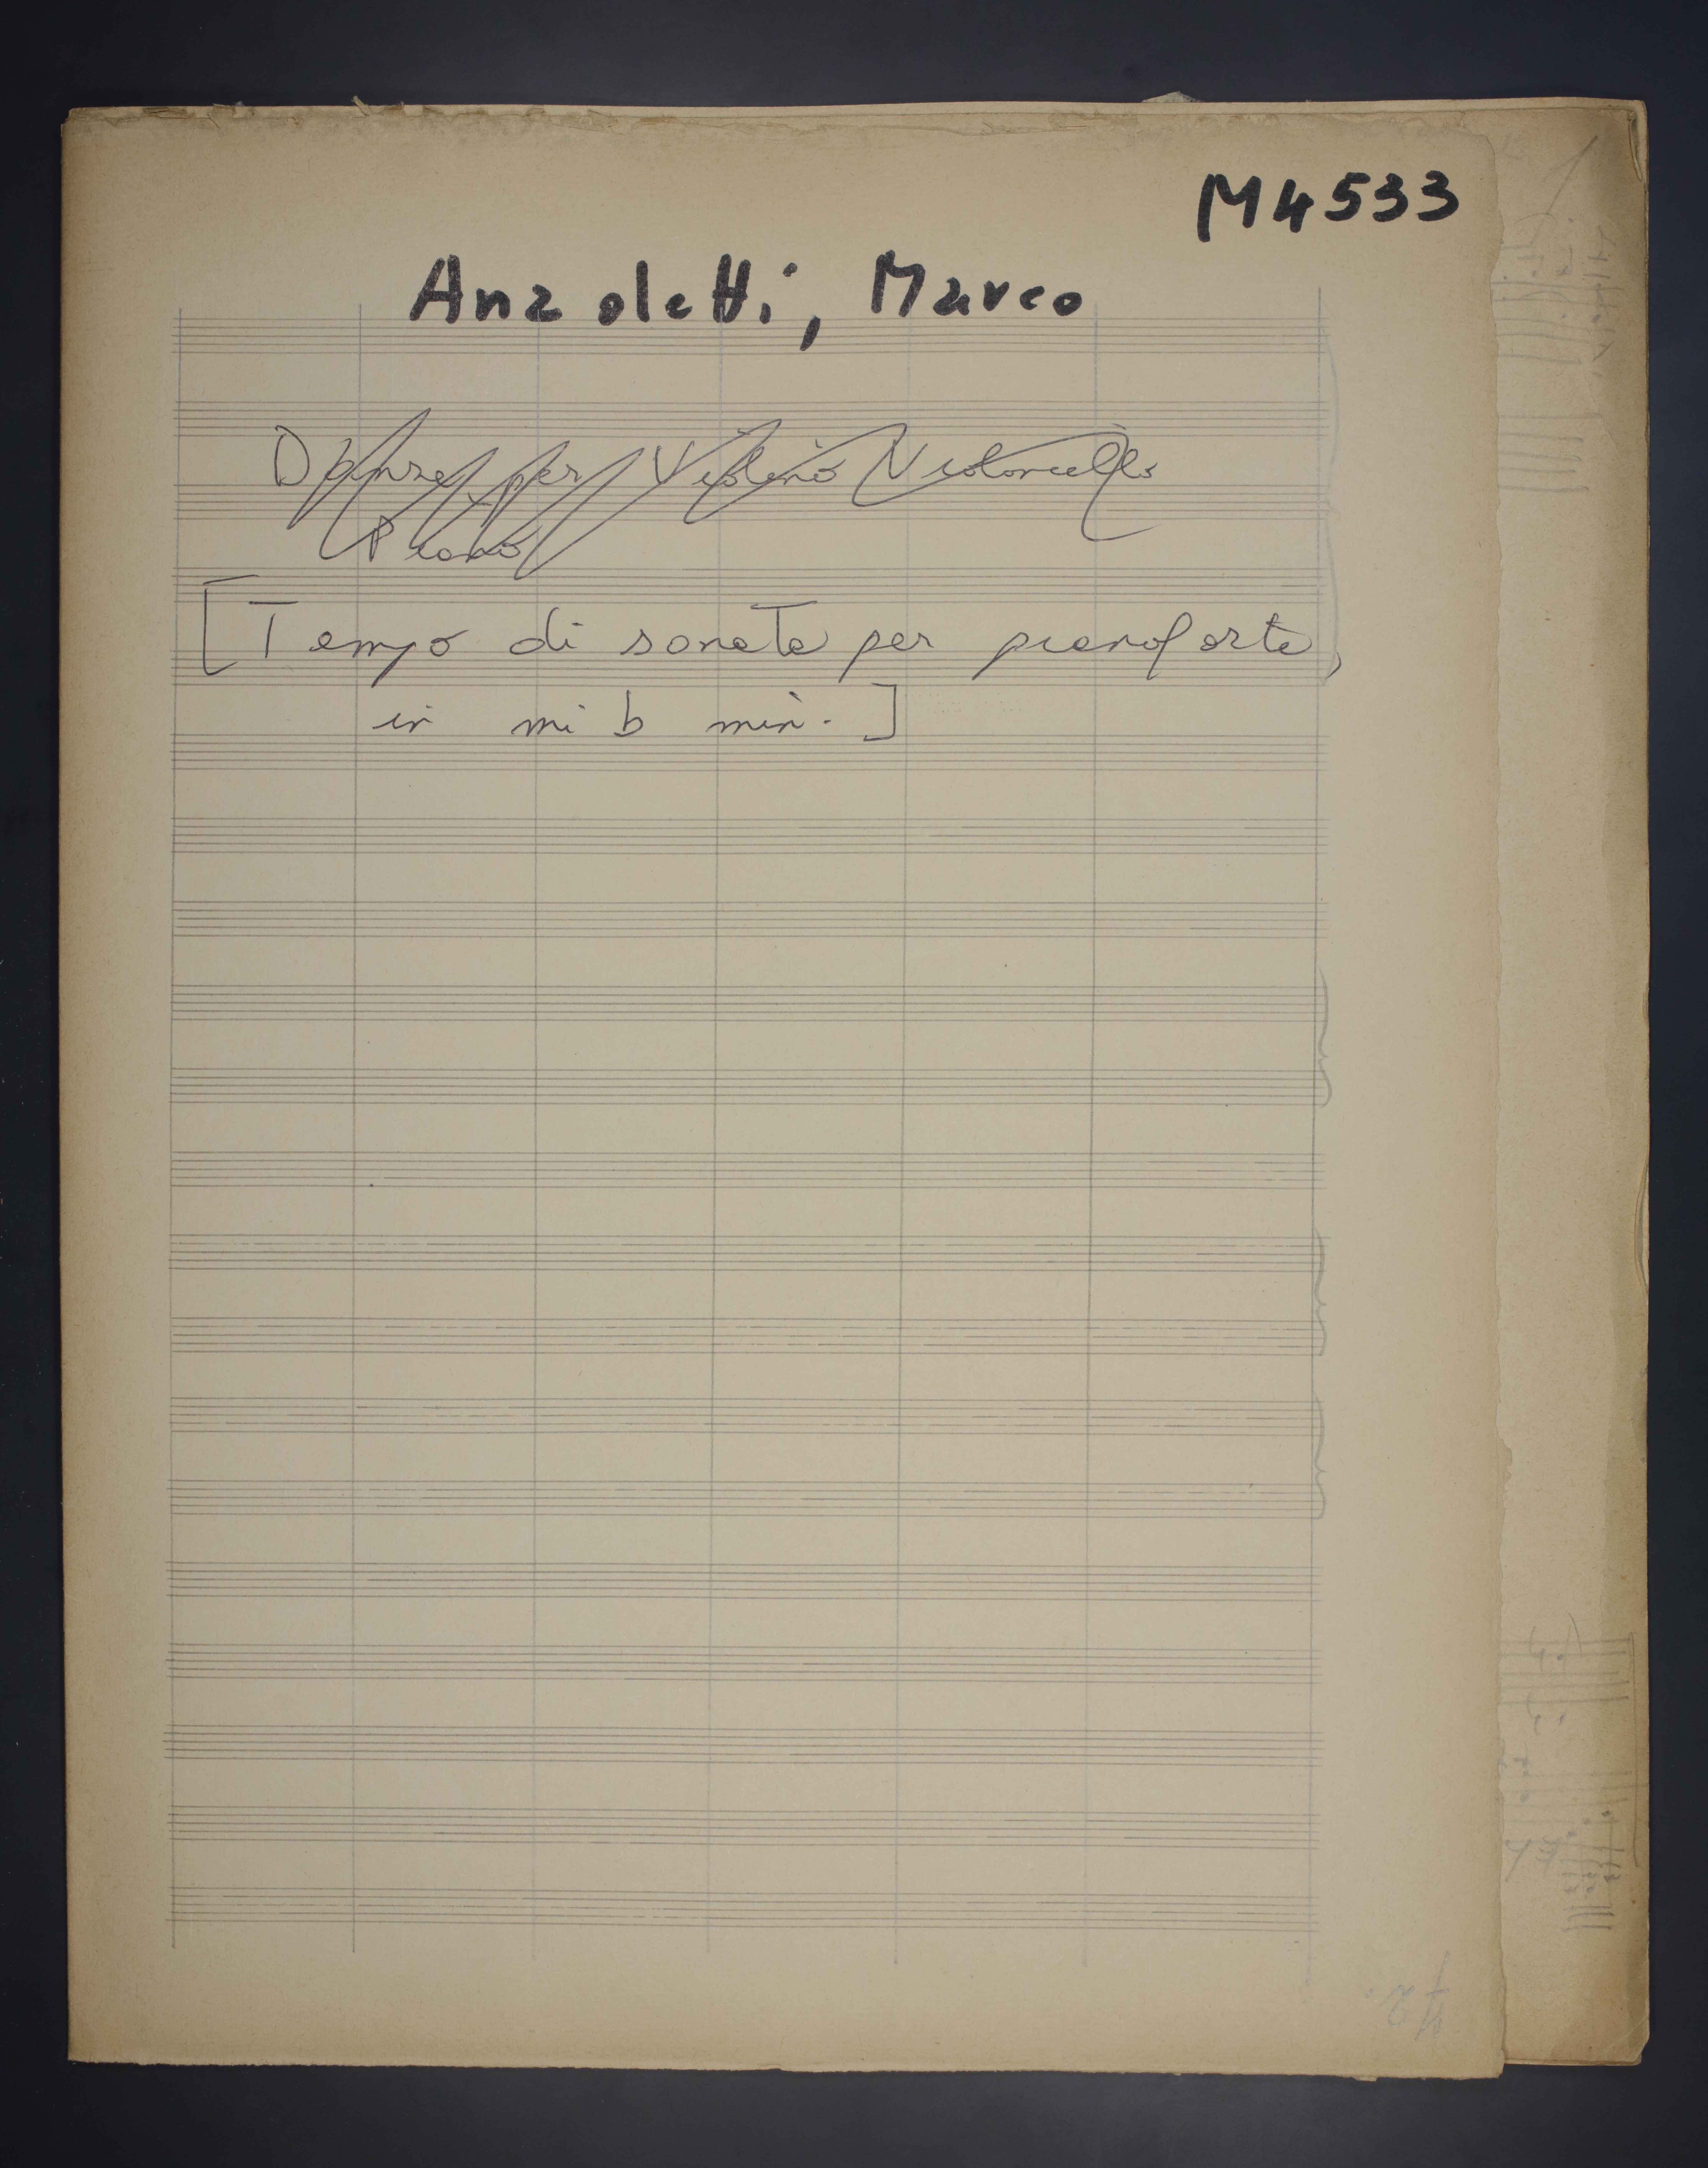 M4533
Anzoletti, Marco
per Violino Violoncello
Piano
[Tempo di sonata per pianoforte,
in mi b min.]